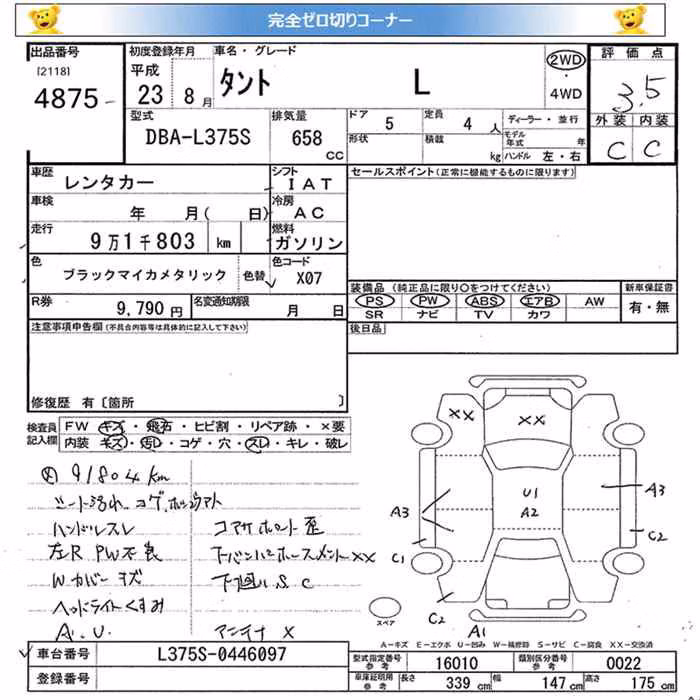 完全ゼロ切りコーナー
出品番号 初度登録年月 車名・グレード 評価点
[2118] 平成 タント L 2WD ・ 4WD 3.5
4875 23年 8月
型式 排気量 ドア 5 定員 4人 ディーラー・並行 外装 内装
DBA-L375S 658 CC 形状 積載 kg モデル年式 年 C C
ハンドル 左・右
車歴 レンタカー シフト IAT セールスポイント(正常に機能するものに限ります)
車検 年 月( 日) 冷房 AC
走行 9万1千803 km 燃料 ガソリン
色 ブラックマイカメタリック 色替 色コード X07
装備品(純正品に限り○をつけてください) 新車保証書
R券 9,790円 名変通知期限 月 日 PS PW ABS エアB AW 有・無
SR ナビ TV カワ
注意事項申告欄(不具合内容等は具体的に記入して下さい) 後日品
修復歴 有〔箇所 〕
検査員記入欄 FW キズ・飛石・ヒビ割・リペア跡・×要
内装 キズ・汚レ・コゲ・穴・スレ・キレ・破レ
91804km
シート汚れ コゲ
ハンドルスレ
左R PW不良 XX
Wカバーキズ 下廻りS C
ヘッドライトくすみ
A.U. アンテナ X
XX XX
U1
A2
A3 A3
C1 C2
C2 A1
スペア
A-キズ E-エクボ U-凹み W-補修跡 S-サビ C-腐食 XX-交換済
車台番号 L375S-0446097
登録番号
型式指定番号 参考 16010 類別区分番号 参考 0022
車庫証明用 参考 長さ 339cm 幅 147cm 高さ 175cm